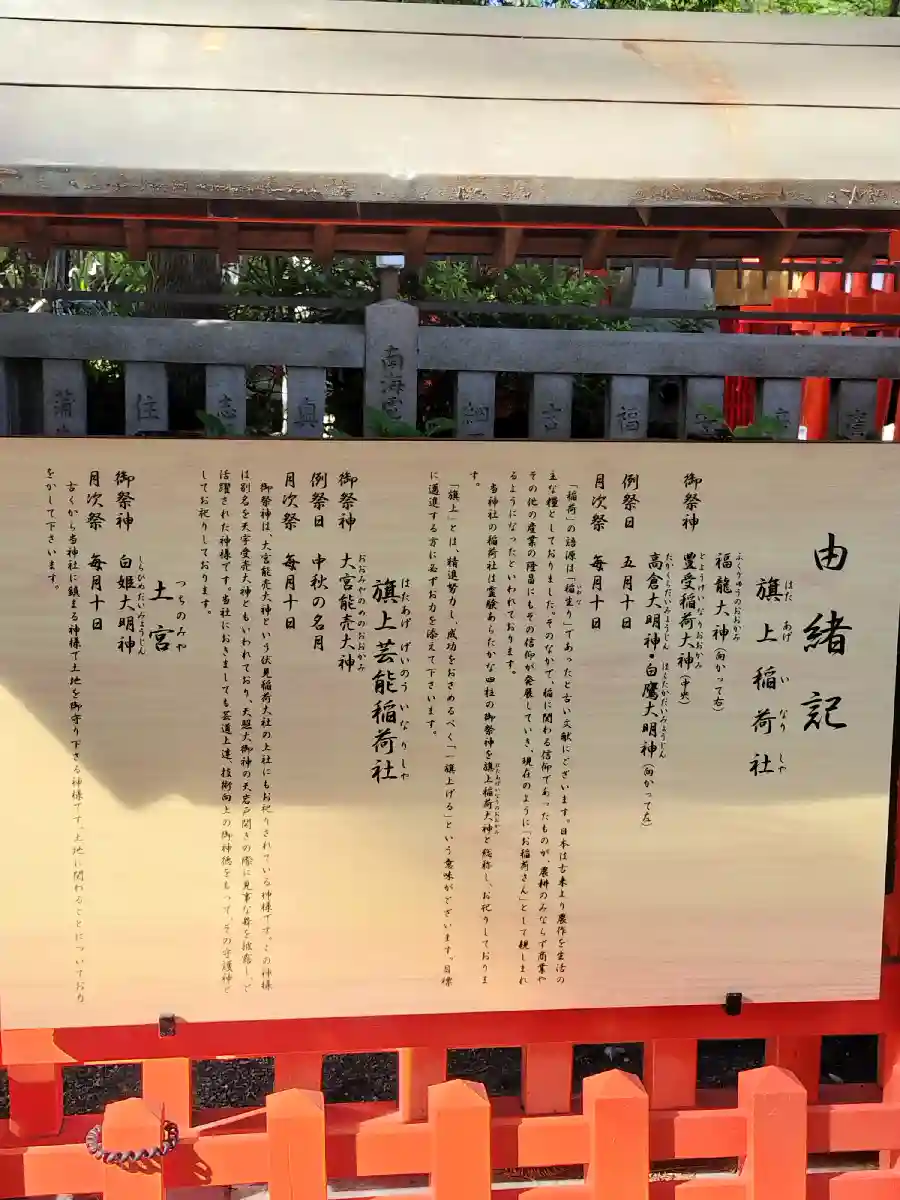 南海
住
志
納
吉
福
由緒記
旗上稲荷社
はたあげいなりしゃ
御祭神
福龍大神(向かって右)
ふくりゅうのおおかみ
豊受稲荷大神(中央)
とようけいなりおおかみ
高倉大明神・白鷹大明神(向かって左)
たかくらだいみょうじん はくたかだいみょうじん
例祭日 五月十日
月次祭 毎月十日
「稲荷」の語源は「稲生り」であったと古い文献にございます。日本は古来より農作を生活の
主な糧としておりました。そのなかで、稲に関わる信仰であったものが、農耕のみならず商業や
その他の産業の隆昌にもその信仰が発展していき、現在のように「お稲荷さん」として親しまれ
るようになったといわれております。
当神社の稲荷社は霊験あらたかな四柱の御祭神を旗上稲荷大神と総称し、お祀りしておりま
す。
「旗上」とは、精進努力し、成功をおさめるべく「一旗上げる」という意味がございます。目標
に邁進する方に必ずお力を添えて下さいます。
旗上芸能稲荷社
はたあげ げいのう いなりしゃ
御祭神 大宮能売大神
おおみやのめのおおかみ
例祭日 中秋の名月
月次祭 毎月十日
御祭神は、大宮能売大神という伏見稲荷大社の上社にもお祀りされている神様です。この神様
は別名を天宇受売大神ともいわれており、天照大御神の天岩戸開きの際に見事な舞を披露し、ご
活躍された神様です。当社におきましても芸道上達、技術向上の御神徳をもって、その守護神と
してお祀りしております。
土宮
つちのみや
御祭神 白姫大明神
しらひめだいみょうじん
月次祭 毎月十日
古くから当神社に鎮まる神様で土地を御守り下さる神様です。土地に関わることについてお力
をかして下さいます。